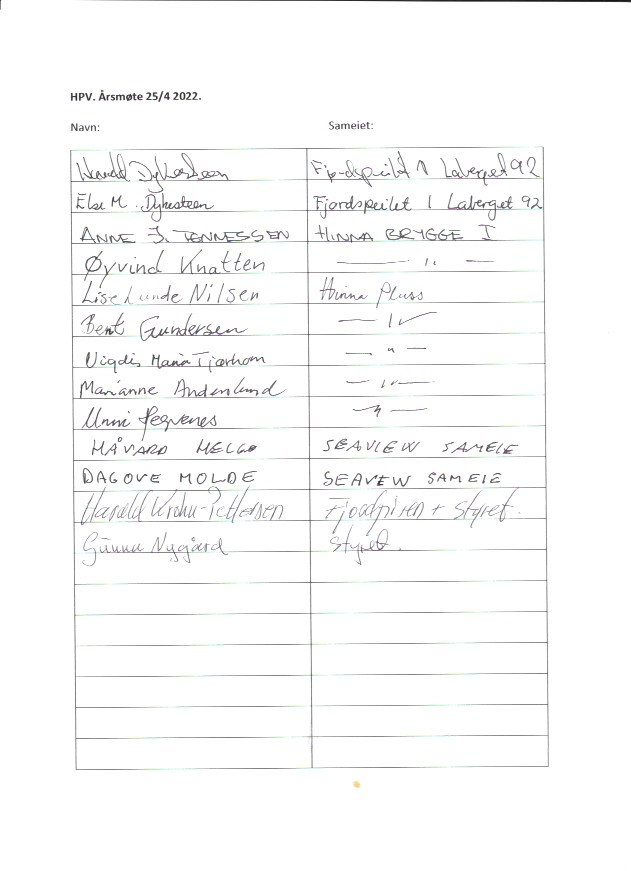 HPV. Årsmøte 25/4 2022.
Navn: Sameiet:
Harald Dykesteen Fjordspeilet 1 Laberget 92
Else M. Dykesteen Fjordspeilet 1 Laberget 92
ANNE J. TØNNESSEN HINNA BRYGGE I
Øyvind Knatten — " —
Lise Lunde Nilsen Hinna Pluss
Bent Gundersen — " —
Vigdis Maria Tjørhom — " —
Marianne Andenlund — " —
Unni — " —
HÅVARD HELGØ SEAVIEW SAMEIE
DAG OVE MOLDE SEAVEW SAMEIE
Harald Krohn-Pettersen Fjordpiren + Styret.
Gunnar Nygård Styret.